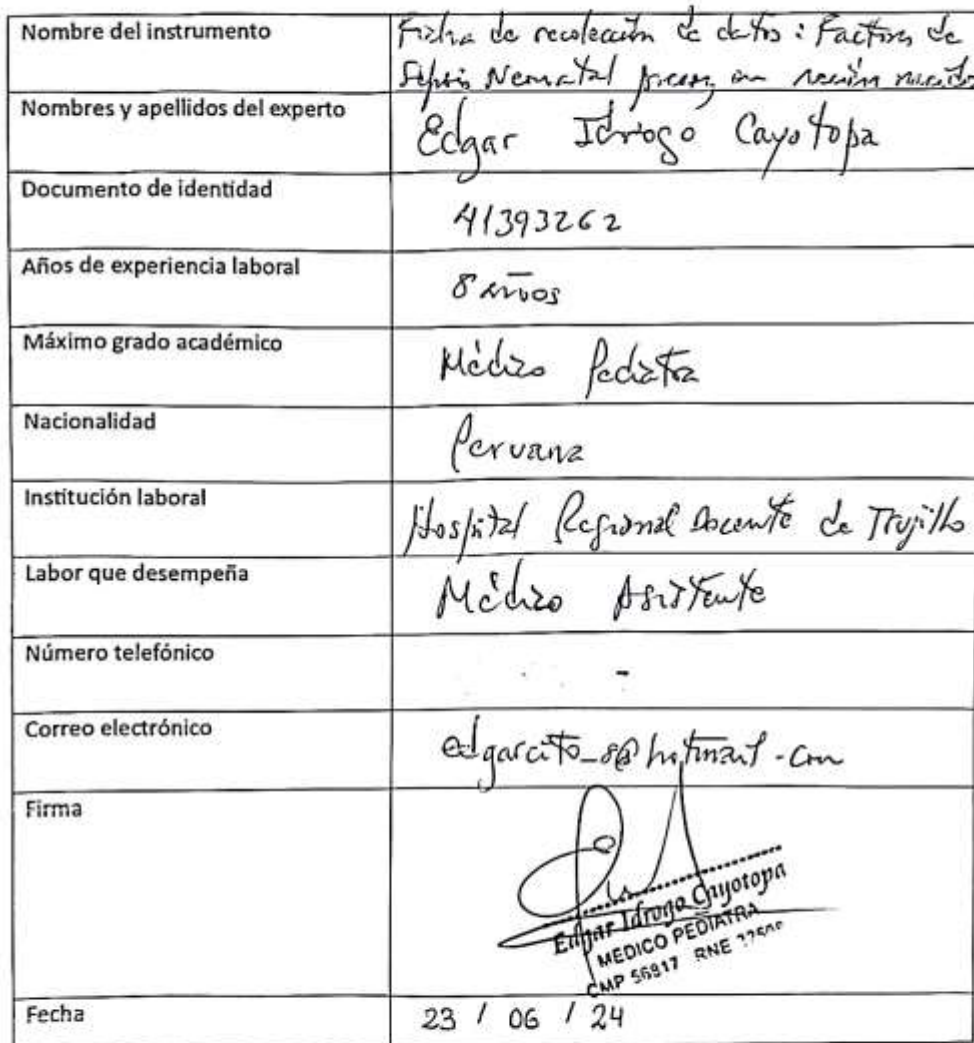 Nombre del instrumento
Ficha de recolección de datos: Factores de
Sepsis Neonatal precoz en recién nacidos
Nombres y apellidos del experto
Edgar Idrogo Cayotopa
Documento de identidad
41393262
Años de experiencia laboral
8 años
Máximo grado académico
Médico Pediatra
Nacionalidad
Peruana
Institución laboral
Hospital Regional Docente de Trujillo
Labor que desempeña
Médico Asistente
Número telefónico
-
Correo electrónico
edgarcito_8@hotmail.com
Firma
Edgar Idrogo Cayotopa
MEDICO PEDIATRA
CMP 56817 RNE
Fecha
23 / 06 / 24